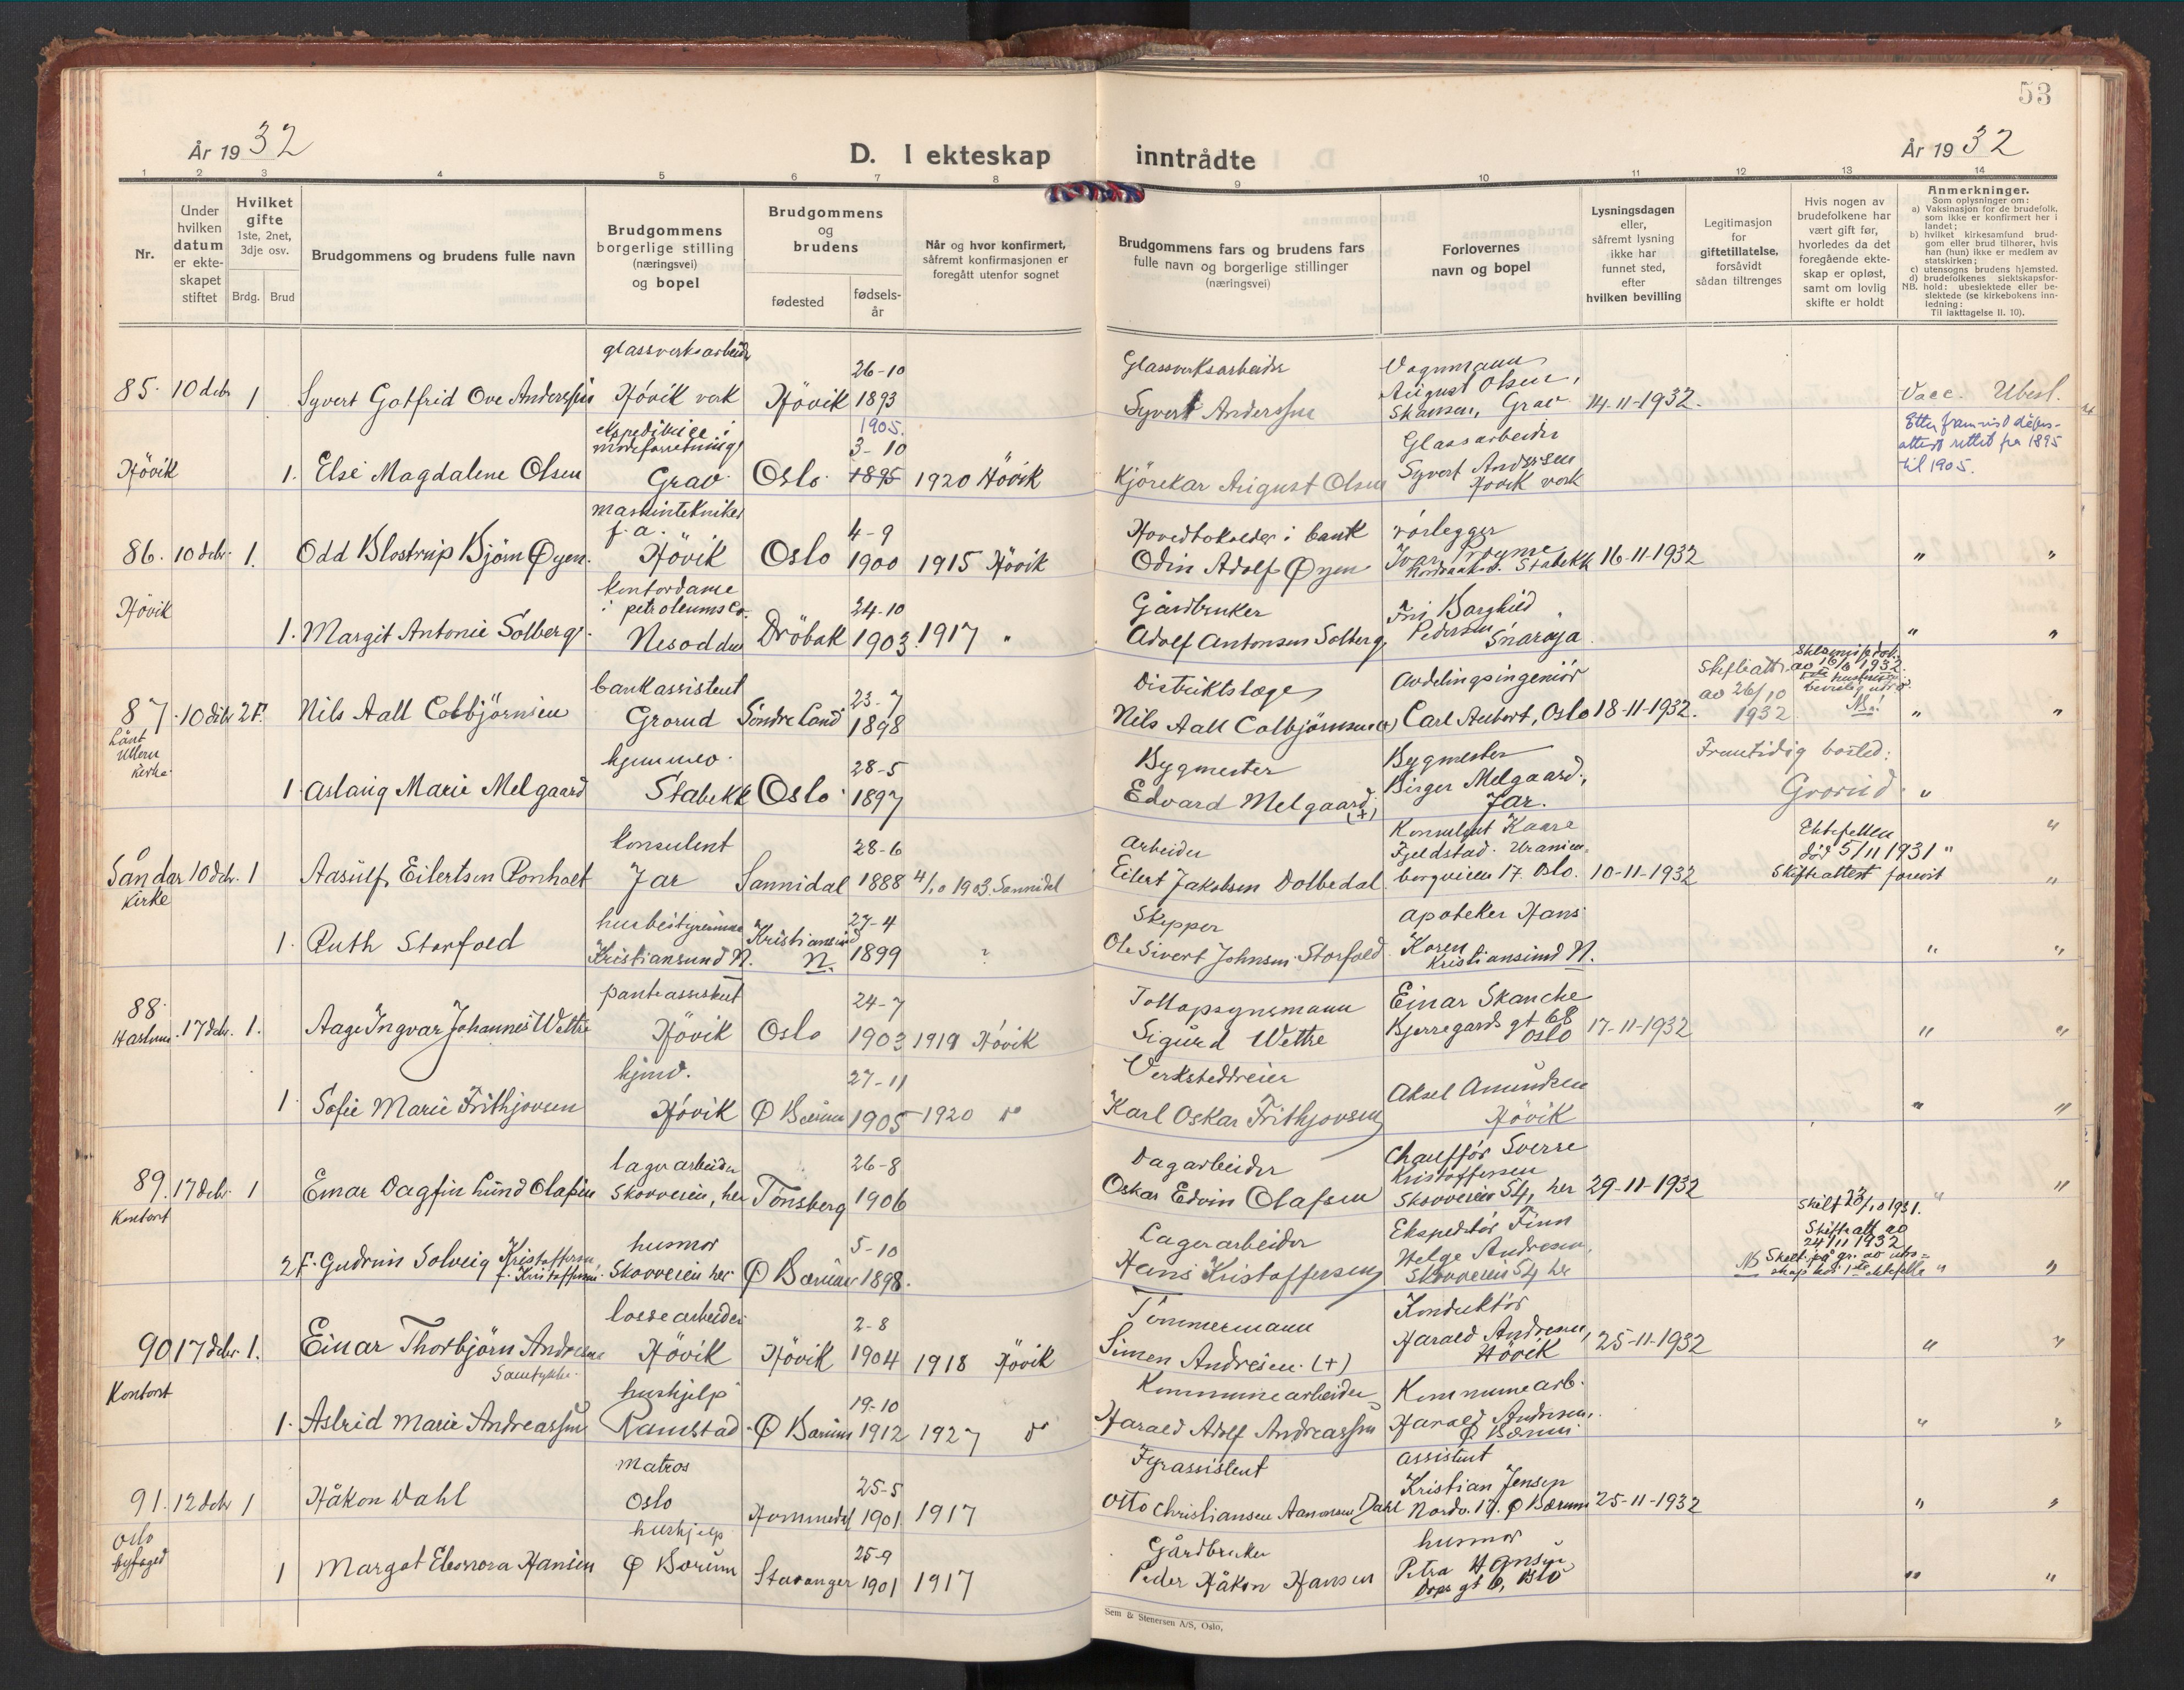 53
År 1932
D. I ekteskap inntrådte
År 1932
1 2 3 4 5 6 7 8 9 10 11 12 13 14
Nr.
Under hvilken datum er ekte-skapet stiftet
Hvilket gifte 1ste, 2net, 3dje osv.
Brdg. Brud
Brudgommens og brudens fulle navn
Brudgommens borgerlige stilling (næringsvei) og bopel
Brudgommens og brudens
fødested
fødsels-år
Når og hvor konfirmert, såfremt konfirmasjonen er foregått utenfor sognet
Brudgommens fars og brudens fars fulle navn og borgerlige stillinger (næringsvei)
Forlovernes navn og bopel
Lysningsdagen eller, såfremt lysning ikke har funnet sted, efter hvilken bevilling
Legitimasjon for giftetillatelse, forsåvidt sådan tiltrenges
Hvis nogen av brudefolkene har vært gift før, hvorledes da det foregående ekte-skap er opløst, samt om lovlig skifte er holdt
Anmerkninger.
Som oplysninger om:
a) Vaksinasjon for de brudefolk, som ikke er konfirmert her i landet;
b) hvilket kirkesamfund brud-gom eller brud tilhører, hvis han (hun) ikke er medlem av statskirken;
c) utensogns brudens hjemsted.
d) brudefolkenes slektskapsfor-hold: ubeslektede eller be-slektede (se kirkebokens inn-ledning:
NB.
Til iakttagelse II. 10).
glassverksarbeider
26-10
Glassverksarbeider
Vognmann
85. 10 debr 1 Syvert Gotfrid Ove Anderssen Høvik verk Høvik 1893
Syvert Anderssen
August Olsen,
Skansen, Grav 14-11-1932.
Vacc. Ubesl.
ekspeditrice i
moteforretning
1905.
3-10
Glassarbeider
Etter framvist dåps-
attest rettet fra 1895
til 1905.
Høvik 1. Else Magdalene Olsen Grav Oslo 1895 1920 Høvik
Kjørekar August Olsen
Syvert Andersen
Høvik verk
maskintekniker
f.a.
4-9
Hovedbokholder i bank
rørlegger
86. 10 debr. 1. Odd Blostrup Bjørn Øyen. Høvik Oslo 1900 1915 Høvik
Odin Adolf Øyen
Stabekk 16-11-1932 " "
kontordame
i petroleumsco.
24-10
Gårdbruker
Høvik 1. Margit Antonie Solberg. Nesodden Drøbak 1903. 1917 "
Adolf Antonsen Solberg
Frk Borghild
Pedersen
Snarøya " "
bankassistent
23-7
Distriktslæge
Avdelingsingeniør
Skifteattr.
av 26/10
1932
av 16/6 1932.
87. 10 debr 2 F. Nils Aall Colbjörnsen Grorud Søndre Land 1898
Nils Aall Colbjörnsen (+) Carl Aubert, Oslo 18-11-1932. " "
Lånt
Ullern
kirke.
hjemmev.
28-5
Bygmester
Bygmester
Fremtidig bosted:
1. Aslaug Marie Melgaard Stabekk Oslo 1897
Edvard Melgaard (+)
Birger Melgaard,
Jar.
Grorud "
konsulent
28-6
Arbeider
Konsulent Kaare
Fjeldstad. Uranien-
Ektefellen
død 5/11 1931 "
Sandar 10 debr. 1 Aasulf Eilertsen Ronholt Jar Sannidal 1888 4/10 1903. Sannidal
kirke
Eilert Jakobsen Dolbedal
borgveien 17. Oslo. 10-11-1932
Skifteattest forevist "
husbestyrerinne
27-4
Skipper
apoteker Hans
1. Ruth Storfold Kristiansund N. Kristiansund N. 1899 ?
Ole Sivert Johnsen Storfold
Koren
Kristiansund N. " "
panteassistent
24-7
Tollopsynsmann
Einar Skanche
88. Haslum. 17 debr. 1. Aage Ingvar Johannes Wettre Høvik Oslo 1903 1919 Høvik
Sigurd Wettre
Bjerregards gt 68
Oslo 17-11-1932 " "
hjemv.
27-11
Verkstedeier
1 Sofie Marie Frithjovsen Høvik Ø Bærum 1905 1920 do
Karl Oskar Frithjovsen
Aksel Amundsen
Høvik " "
lagerarbeider
26-8
Dagarbeider
Chauffør Sverre
Kristoffersen
89. 17 debr 1 Einar Dagfin Lund Olafsen Skovveien, her Tønsberg 1906
Kontoret
Oskar Edvin Olafsen
Skovveien 54, her 29-11-1932 " "
husmor
5-10
Lagerarbeider
Ekspeditør Finn
Helge Andresen,
Skilt 23/10 1931.
Skifteatt. av
24/11 1932
2 F. Gudrun Solveig Kristoffersen, f. Kristoffersen. Skovveien her Ø Bærum 1898.
Hans Kristoffersen
Skovveien 54 her
NB Skilt på gr. av utro-
skap hos 1ste ektefelle " "
lossearbeider
2-8
Tømmermann
Konduktør
90 17 debr. 1. Einar Thorbjørn Andresen Høvik Høvik 1904 1918 Høvik
Simen Andresen. (+)
Harald Andresen,
Høvik 25-11-1932 " "
Kontoret
hushjelp
19-10
Kommunearbeider
Kommunearb.
1. Astrid Marie Andreassen Ramstad Ø Bærum 1912 1927 do
Harald Adolf Andreassen
Harald Andresen,
Ø Bærum " "
matros
25-5
Fyrassistent
assistent
Kristian Jensen
91. 12 debr 1 Håkon Dahl Oslo Hommedal 1901 1917
Otto Christiansen Aanonsen Dahl
Nordv. 19. Ø Bærum 25-11-1932 " "
Oslo
byfoged
hushjelp
25-9
Gårdbruker
husmor
1 Margot Eleonora Hansen Ø Bærum Stavanger 1901 1917
Peder Håkon Hansen
Petra Hansen,
Dops gt 6, Oslo " "
Sem & Stenersen A/S, Oslo,